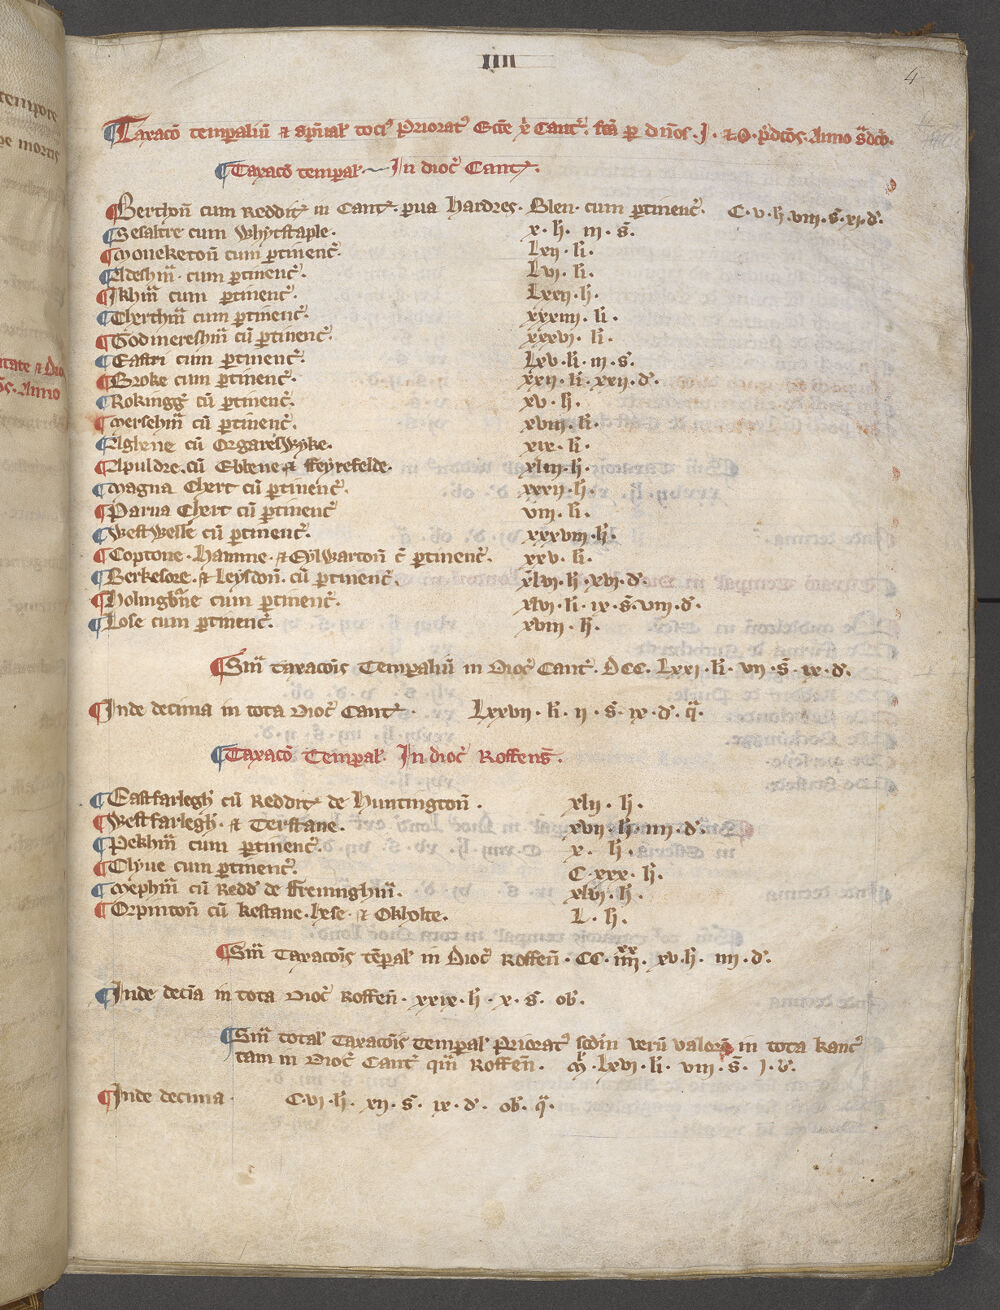 IIII
4
Taxacō temꝑaliū & spūaƚ toci᷒ Prioratᵘ Eccē xp̄i Cant᷒. fc̄a ꝑ dn̄os. J. & O. p̄dc̄os. Anno sᵃdc̄o.
Taxacō temꝑaƚ In dioc᷒ Cant᷒.
Berthoñ cum Reddit᷒ in Cant᷒. ꝑua Hardres. Blen. cum ꝑtinenc᷒. C. v. ƚi. viij. s̄. xj. đ.
Sesaltre cum Whytstaple. x. ƚi. iij. s̄.
Moneketoñ cum ꝑtinenc᷒. Lxij. ƚi.
Adeshm̄. cum ꝑtinenc᷒. Lvj. ƚi.
Ikhm̄ cum ꝑtinenc᷒. Lxxij. ƚi.
Cherthm̄ cum ꝑtinenc᷒. xxxiiij. ƚi.
Godmereshm̄ cū ꝑtinenc᷒. xxxvj. ƚi.
Eastri cum ꝑtinenc᷒. Lxv. ƚi. iij. s̄.
Broke cum ꝑtinenc᷒. xxij. ƚi. xxij. đ.
Rokingḡ cū ꝑtinenc᷒. xv. ƚi.
Mershm̄ cū ꝑtinenc᷒. xviij. ƚi.
Aghene cū Orgareswyke. xix. ƚi.
Apuldre. cū Ebbene & ffeyrefelde. xliij. ƚi.
Magna Chert cū ꝑtinenc᷒. xxxij. ƚi.
Parua Chert cū ꝑtinenc᷒ viij. ƚi.
Westwelle cū ꝑtinenc᷒. xxxviij. ƚi.
Coptone. Hamme. & Eylwartoñ c̄ ꝑtinenc᷒. xxv. ƚi.
Berkesore. & Leysdoñ. cū ꝑtinenc᷒. xlvj. ƚi. xvj. đ.
Holingbn̄e cum ꝑtinenc᷒. xlvj. ƚi. ix. s̄. viij. đ.
Lose cum ꝑtinenc᷒. xviij. ƚi.
Sm̄ᵃ taxacōis Temꝑaliū in Dioc᷒ Cant᷒. DCC. Lxxj. ƚi. vij. s̄. ix. đ.
Inde decima in tota Dioc᷒ Cant᷒. Lxxvij. ƚi. ij. s̄. ix. đ. qᵃ.
Taxacō Temꝑaƚ. In dioc᷒ Roffens̄.
Eastfarlegh̄ cū Reddit᷒ de Huntingtoñ. xlij. ƚi.
Westfarlegh̄. & Terstane. xvij. ƚi. iiij. đ.
Pekhm̄ cum ꝑtinenc᷒. x. ƚi.
Clyue cum ꝑtinenc᷒. C. xxx. ƚi.
Mephm̄ cū Redd᷒ de ffreninghm̄. xlvj. ƚi.
Orpintoñ cū Kestane. Lese. & Okholte. L. ƚi.
Sm̄ᵃ Taxacōis tēꝑaƚ in Dioc᷒ Roffeñ. CC. iiijˣˣ. xv. ƚi. iiij. đ.
Inde decīa in tota Dioc᷒ Roffeñ. xxix. ƚi. x. s̄. oƀ.
Sm̄ᵃ totaƚ Taxacōis Temꝑaƚ Prioratᵘ scd̄m verū valorē in tota Kanc᷒
tam in Dioc᷒ Cant᷒ qᵃm̄ Roffeñ. Mˡ. Lxvj. ƚi. viij. s̄. j. đ.
Inde decima. C. vj. ƚi. xij. s̄. ix. đ. oƀ. qᵃ.